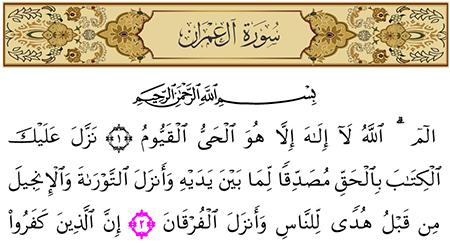 سُورَةُ آلِ عِمْرَانَ
بِسْمِ اللَّهِ الرَّحْمَٰنِ الرَّحِيمِ
الٓمٓ ۗ اللَّهُ لَآ إِلَٰهَ إِلَّا هُوَ الْحَىُّ الْقَيُّومُ ﴿١﴾ نَزَّلَ عَلَيْكَ
الْكِتَٰبَ بِالْحَقِّ مُصَدِّقًا لِّمَا بَيْنَ يَدَيْهِ وَأَنزَلَ التَّوْرَىٰةَ وَالْإِنجِيلَ
مِن قَبْلُ هُدًى لِّلنَّاسِ وَأَنزَلَ الْفُرْقَانَ ﴿٢﴾ إِنَّ الَّذِينَ كَفَرُوا۟